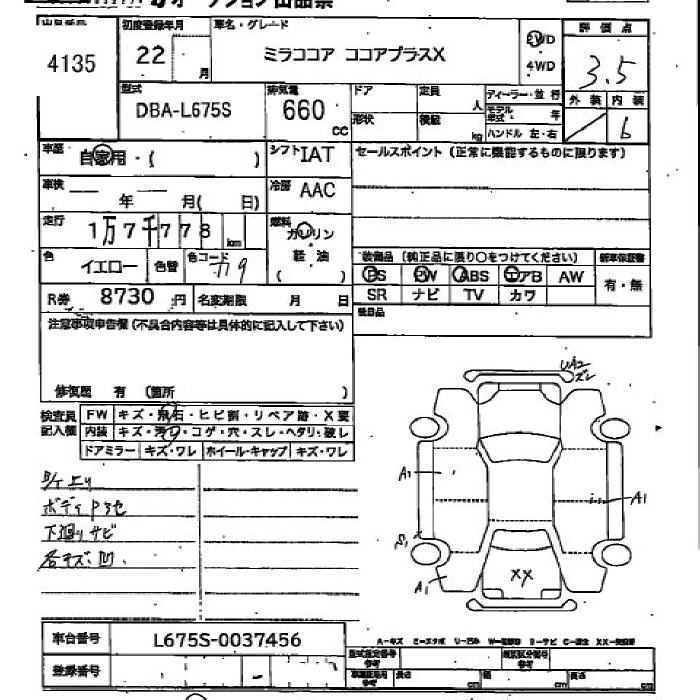 出品番号 初度登録年月 車名・グレード 評価点
4135 22 月 ミラココア ココアプラスX 2WD 4WD 3.5
型式 排気量 ドア 定員 ディーラー・並行 外装 内装
DBA-L675S 660 CC 人 モデル年式 年 6
形状 積載 kg ハンドル 左・右
車歴 自家用・( ) シフト IAT セールスポイント (正常に機能するものに限ります)
車検 年 月( 日) 冷房 AAC
走行 1万7千778 km 燃料 ガソリン
軽油
( )
色 イエロー 色替 色コード 装備品 (純正品に限り○をつけてください) 新車保証書
PS PW ABS エアB AW 有・無
R券 8730円 名変期限 月 日 SR ナビ TV カワ
注意事項申告欄 (不具合内容等は具体的に記入して下さい)
修復歴 有 (箇所 )
検査員記入欄 FW キズ・飛石・ヒビ割・リペア跡・X要
内装 キズ・汚れ・コゲ・穴・スレ・ヘタリ・破レ
ドアミラー キズ・ワレ ホイール・キャップ キズ・ワレ
下廻りサビ
各キズ・凹
UA2
ズレ
A1
A1
S1
A1
XX
車台番号 L675S-0037456
登録番号 -
型式指定番号 類別区分番号
長さ cm 幅 cm 高さ cm